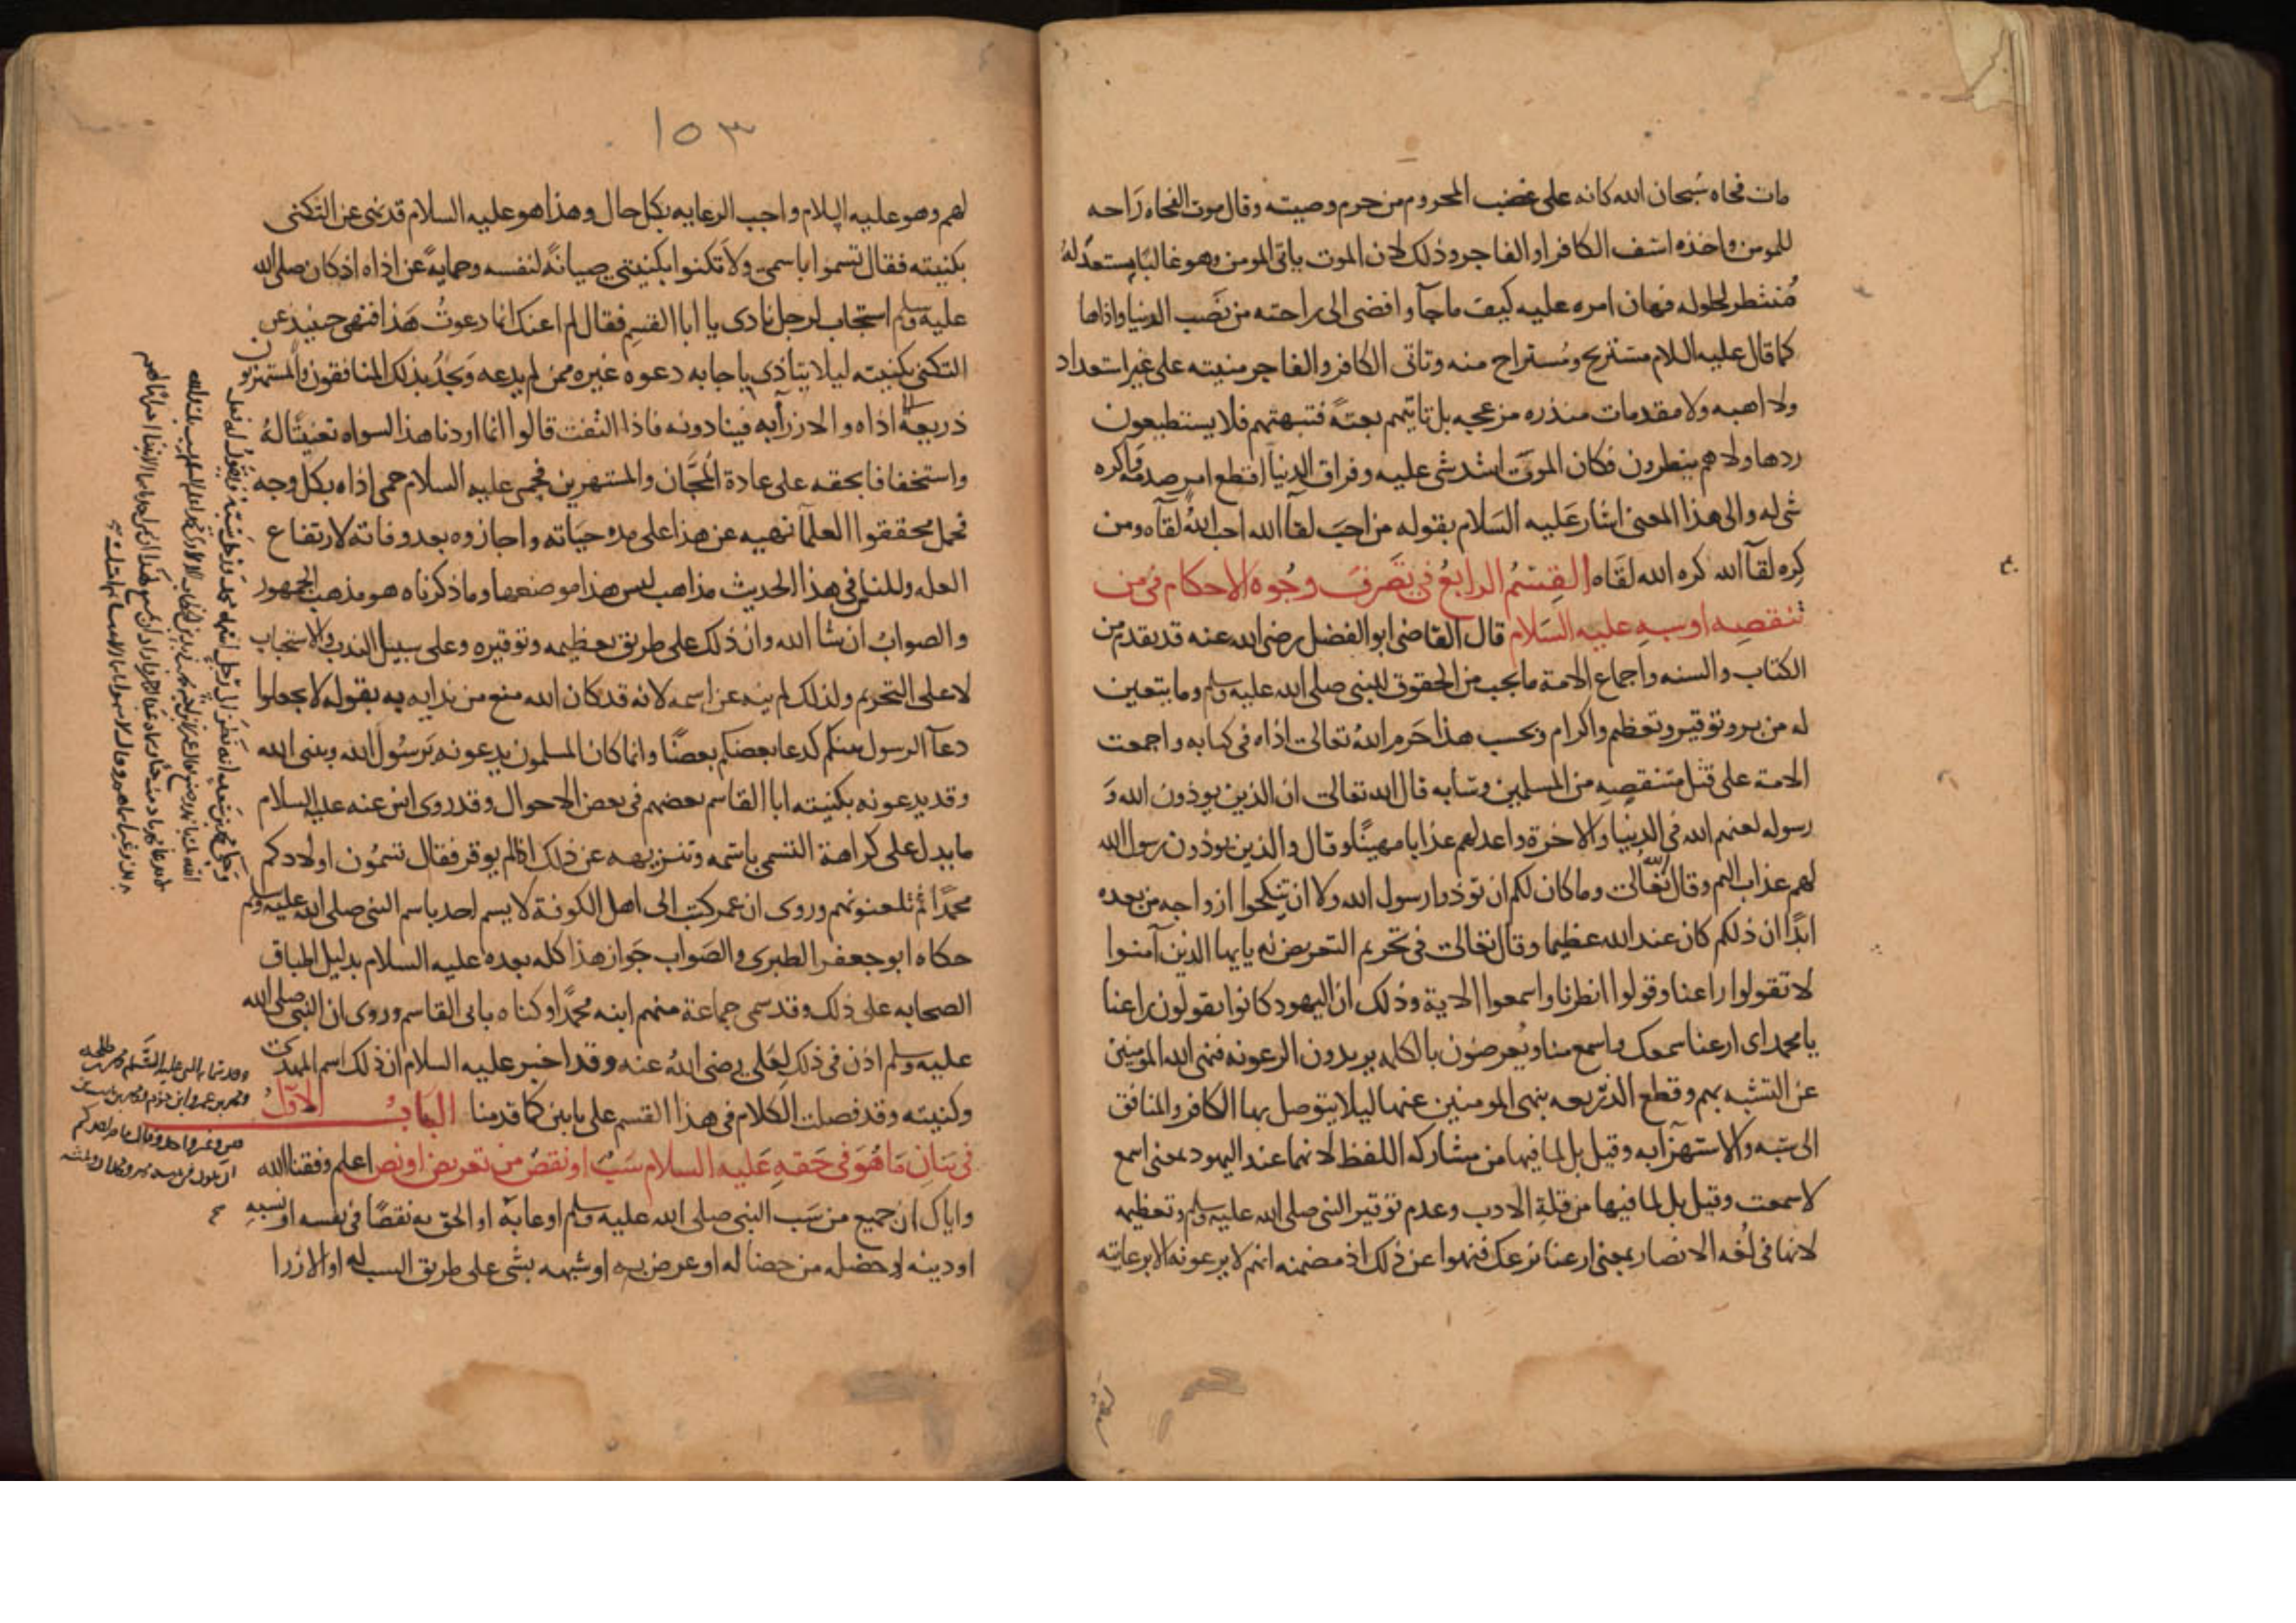 مات فجاه سُبحان الله كانه على غضب المحروم من حرم وصيته وقال موت الفجاه رَاحه
للمومن واخذه اسف الكافر او الفاجر وذلك لان الموت ياتى المومن وهو غالبًا مستعدٌ لهُ
مُنتظر لحلوله فهان امره عليه كيف ما جآ وافضى الى راحته من نَصَب الدنيا واذاها
كما قال عليه السلام مستريح ومُستراح منه وتاتى الكافر والفاجر منيته على غير استعداد
ولا اهبه ولا مقدمات منذره مزعجه بل تاتيهم بغتةً فتبهتهم فلا يستطيعون
ردها ولا هم ينظرون فكان الموت اشد شى عليه وفراق الدنيا افظع امر صدمه واكره
شى له والى هذا المعنى اشار عَليه السَلام بقوله من احبَ لقآ الله احب اللهُ لقآه ومن
كِره لقآ الله كره الله لقَاه القِسْمُ الرابعُ فى تصَرف وجُوه الاحكام فى من
تنقصه او سبه عليه السَلام قال القاضى ابو الفضل رضى الله عنه قد تقدم من
الكتاب والسنه واجماع الامة ما يجب من الحقوق للنبى صلى الله عليه وسلم وما يتعين
له من بر وتوقير وتعظيم واكرام وبحسب هذا حَرم اللهُ تعالى اذاه فى كتابه واجمعت
الامة على قتل متنقصِه من المسلمين وسَابه قال الله تعالى ان الذين يوذون الله وَ
رسوله لعنهم الله فى الدنيا والاخرة واعد لهم عذابا مهينًا وقال والذين يوذون رسول الله
لهم عذاب اليم وقال تعَالى وما كان لكم ان توذوا رسول الله ولا ان تنكحوا ازواجه من بعده
ابدًا ان ذلكم كان عند الله عظيما وقال تعالى فى تحريم التعريض له يايها الذين آمنوا
لا تقولوا راعنا وقولوا انظرنا واسمعوا الاية وذلك ان اليهود كانوا يقولون راعنا
يا محمد اى ارعنا سمعك واسمع منا ويُعرضون بالكلمه يريدون الرعونه فنهى الله المومنين
عن التشبه بهم وقطع الذريعه بنهى المومنين عنها ليلا يتوصل بها الكافر والمنافق
الى سَبه والاستهزآ به وقيل بل لما فيها من مشاركه اللفظ لانها عند اليهود بمعنى اسمع
لا سمعت وقيل بل لما فيها من قلةِ الادب وعدم توقير النبى صلى الله عليه وسلم وتعظيمه
لانها فى لغه الانصار بمعنى ارعنا نرعك فنهوا عن ذلك اذ مضمنه انهم لا يرعونه الا برعايته
لهم
١٥٣
لهم وهو عليه السلام واجب الرعايه بكل حال وهذا هو عليه السلام قد نهى عن التكنى
بكنيته فقال تسموا باسمى ولا تكنوا بكنيتى صيانةً لنفسه وحمايةً عن اذاه اذ كان صلى الله
عليه وسلم استجاب لرجل نادى يا ابا القسِم فقال لم اعنك انما دعوتُ هَذا فنهى حينيذ عن
التكنى بكنيته ليلا يتأذى باجابه دعوه غيره ممن لم يدعه ويَجدُ بذلك المنافقون والمستهزون
ذريعةً الى اذاه والازرآ به فينادونه فاذا التفت قالوا انما اردنا هذا لسواه تعنيتًا لهُ
واستخفافا بحقه على عادة المُجَّان والمستهزين فحمى عليه السلام حمى اذاه بكل وجه
فحمل محققوا العلمآ نهيه عن هذا على مده حيَاته واجازوه بعد وفاتة لارتفاع
العله وللناس فى هذا الحديث مذاهب ليس هذا موضعها وما ذكرناه هو مذهب الجمهور
والصوابُ ان شا الله وان ذلك على طريق تعظيمه وتوقيره وعلى سبيل الندب والاستحباب
لا على التحريم ولذلك لم ينه عن اسمه لانه قد كان الله منع من ندايه به بقوله لا تجعلوا
دعآ الرسول بينكم كدعا بعضكم بعضًا وانما كان المسلمون يدعونه بَرسُول الله وبنبى الله
وقد يدعونه بكنيته ابا القاسم بعضهم فى بعض الاحوال وقد روى انس عنه عليه السلام
ما يدل على كراهة التسمى باسمه وتنزيهه عن ذلك اذا لم يوقر فقال تسمُون اولادكم
محمدًا ثم تلعنونهم وروى ان عمر كتب الى اهل الكوفة لا يسم احد باسم النبى صلى الله عليه وسلم
حكاه ابو جعفر الطبرى والصَواب جَواز هذا كله بعده عليه السلام بدليل اطباق
الصحابه على ذلك وقد سمى جماعة منهم ابنه محمدًا وكناه بابى القاسم وروى ان النبى صلى الله
عليه وسلم اذن فى ذلك لعَلى رضى اللهُ عنه وقد اخبر عليه السلام ان ذلك اسم المهدى
وكنيته وقد فصلت الكلام فى هذا القسم على بابين كما قدمنا البَابُ الاَوّلُ
فى بيَانِ مَا هُوَ فى حَقهِ عَليه السلام سَبٌ او نقصٌ من تعريض او نص اعلم وفقنا الله
واياك ان جميع من سَب النبى صلى الله عليه وسلم او عابهُ او الحق به نقصًا فى نفسه او نسبهِ
او دينه او خصله من خصاله او عرض به او شبهه بشى على طريق السب له او الازرا